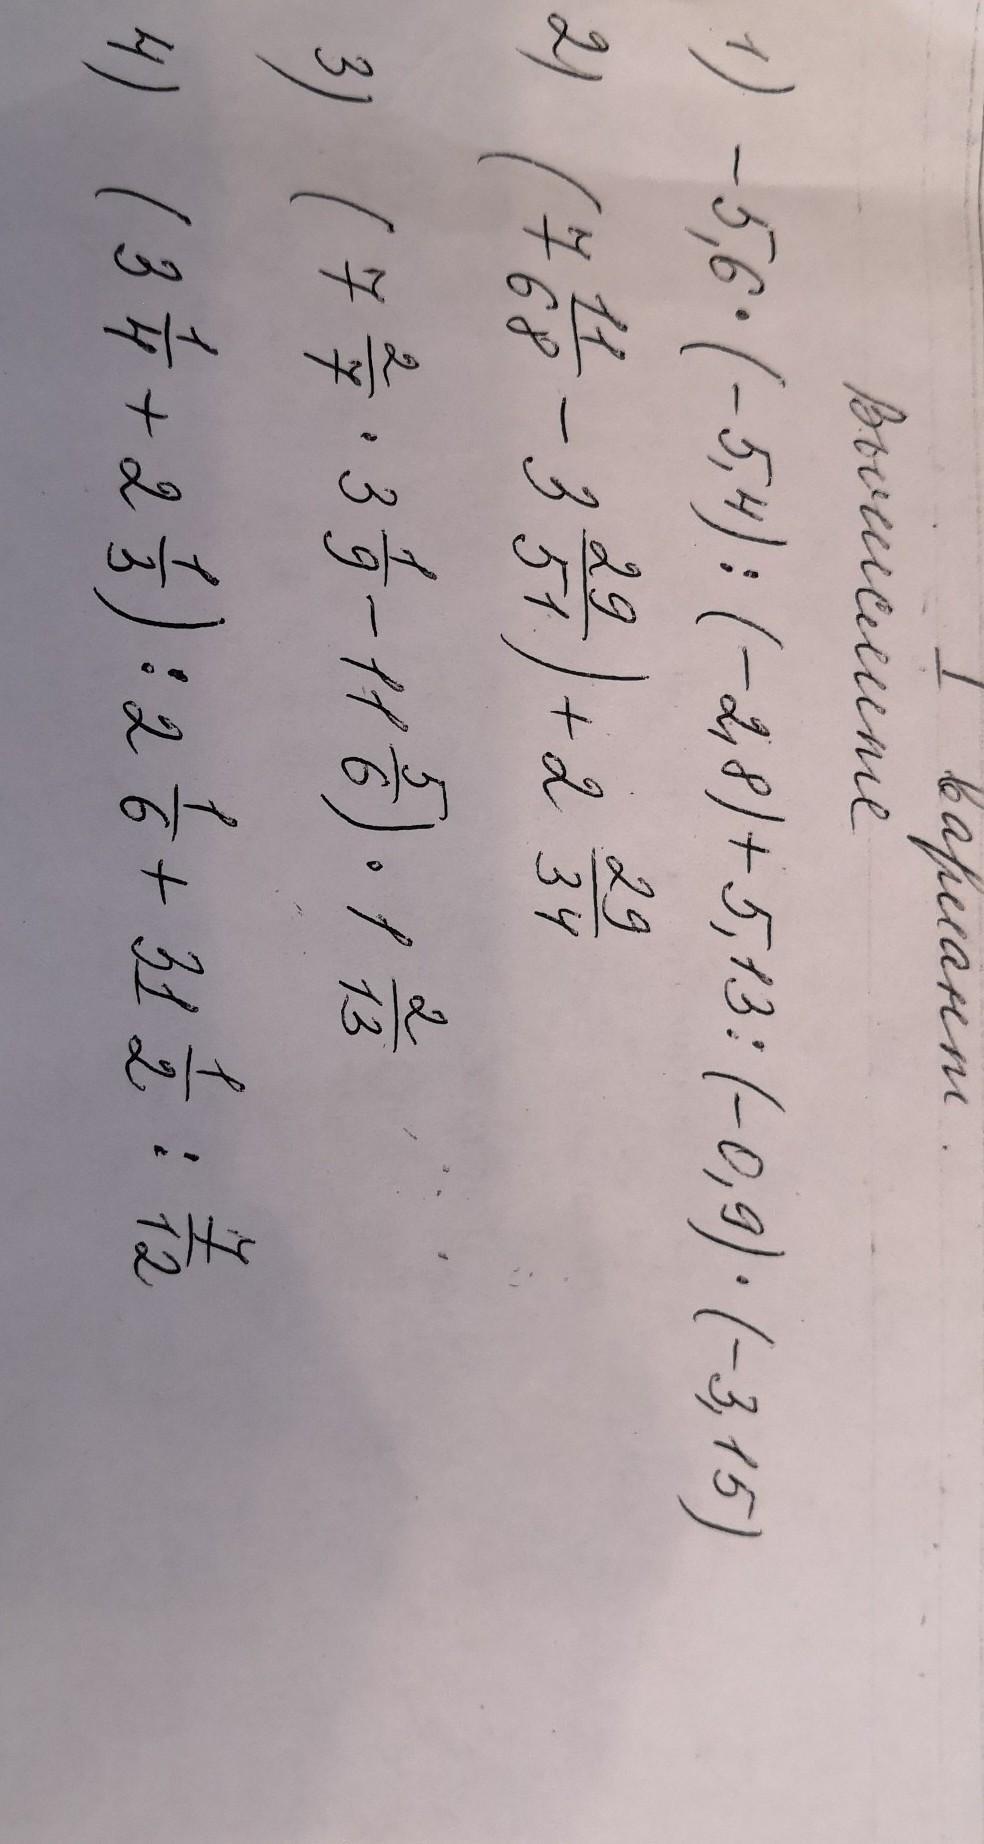 I вариант.
Вычислите
1) -5,6·(-5,4):(-2,8)+5,13:(-0,9)·(-3,15)
2) (7 11/68 - 3 29/51)+2 29/34
3) (7 2/7 · 3 1/9 - 11 5/6) · 1 2/13
4) (3 1/4 + 2 1/3) : 2 1/6 + 31 1/2 : 7/12